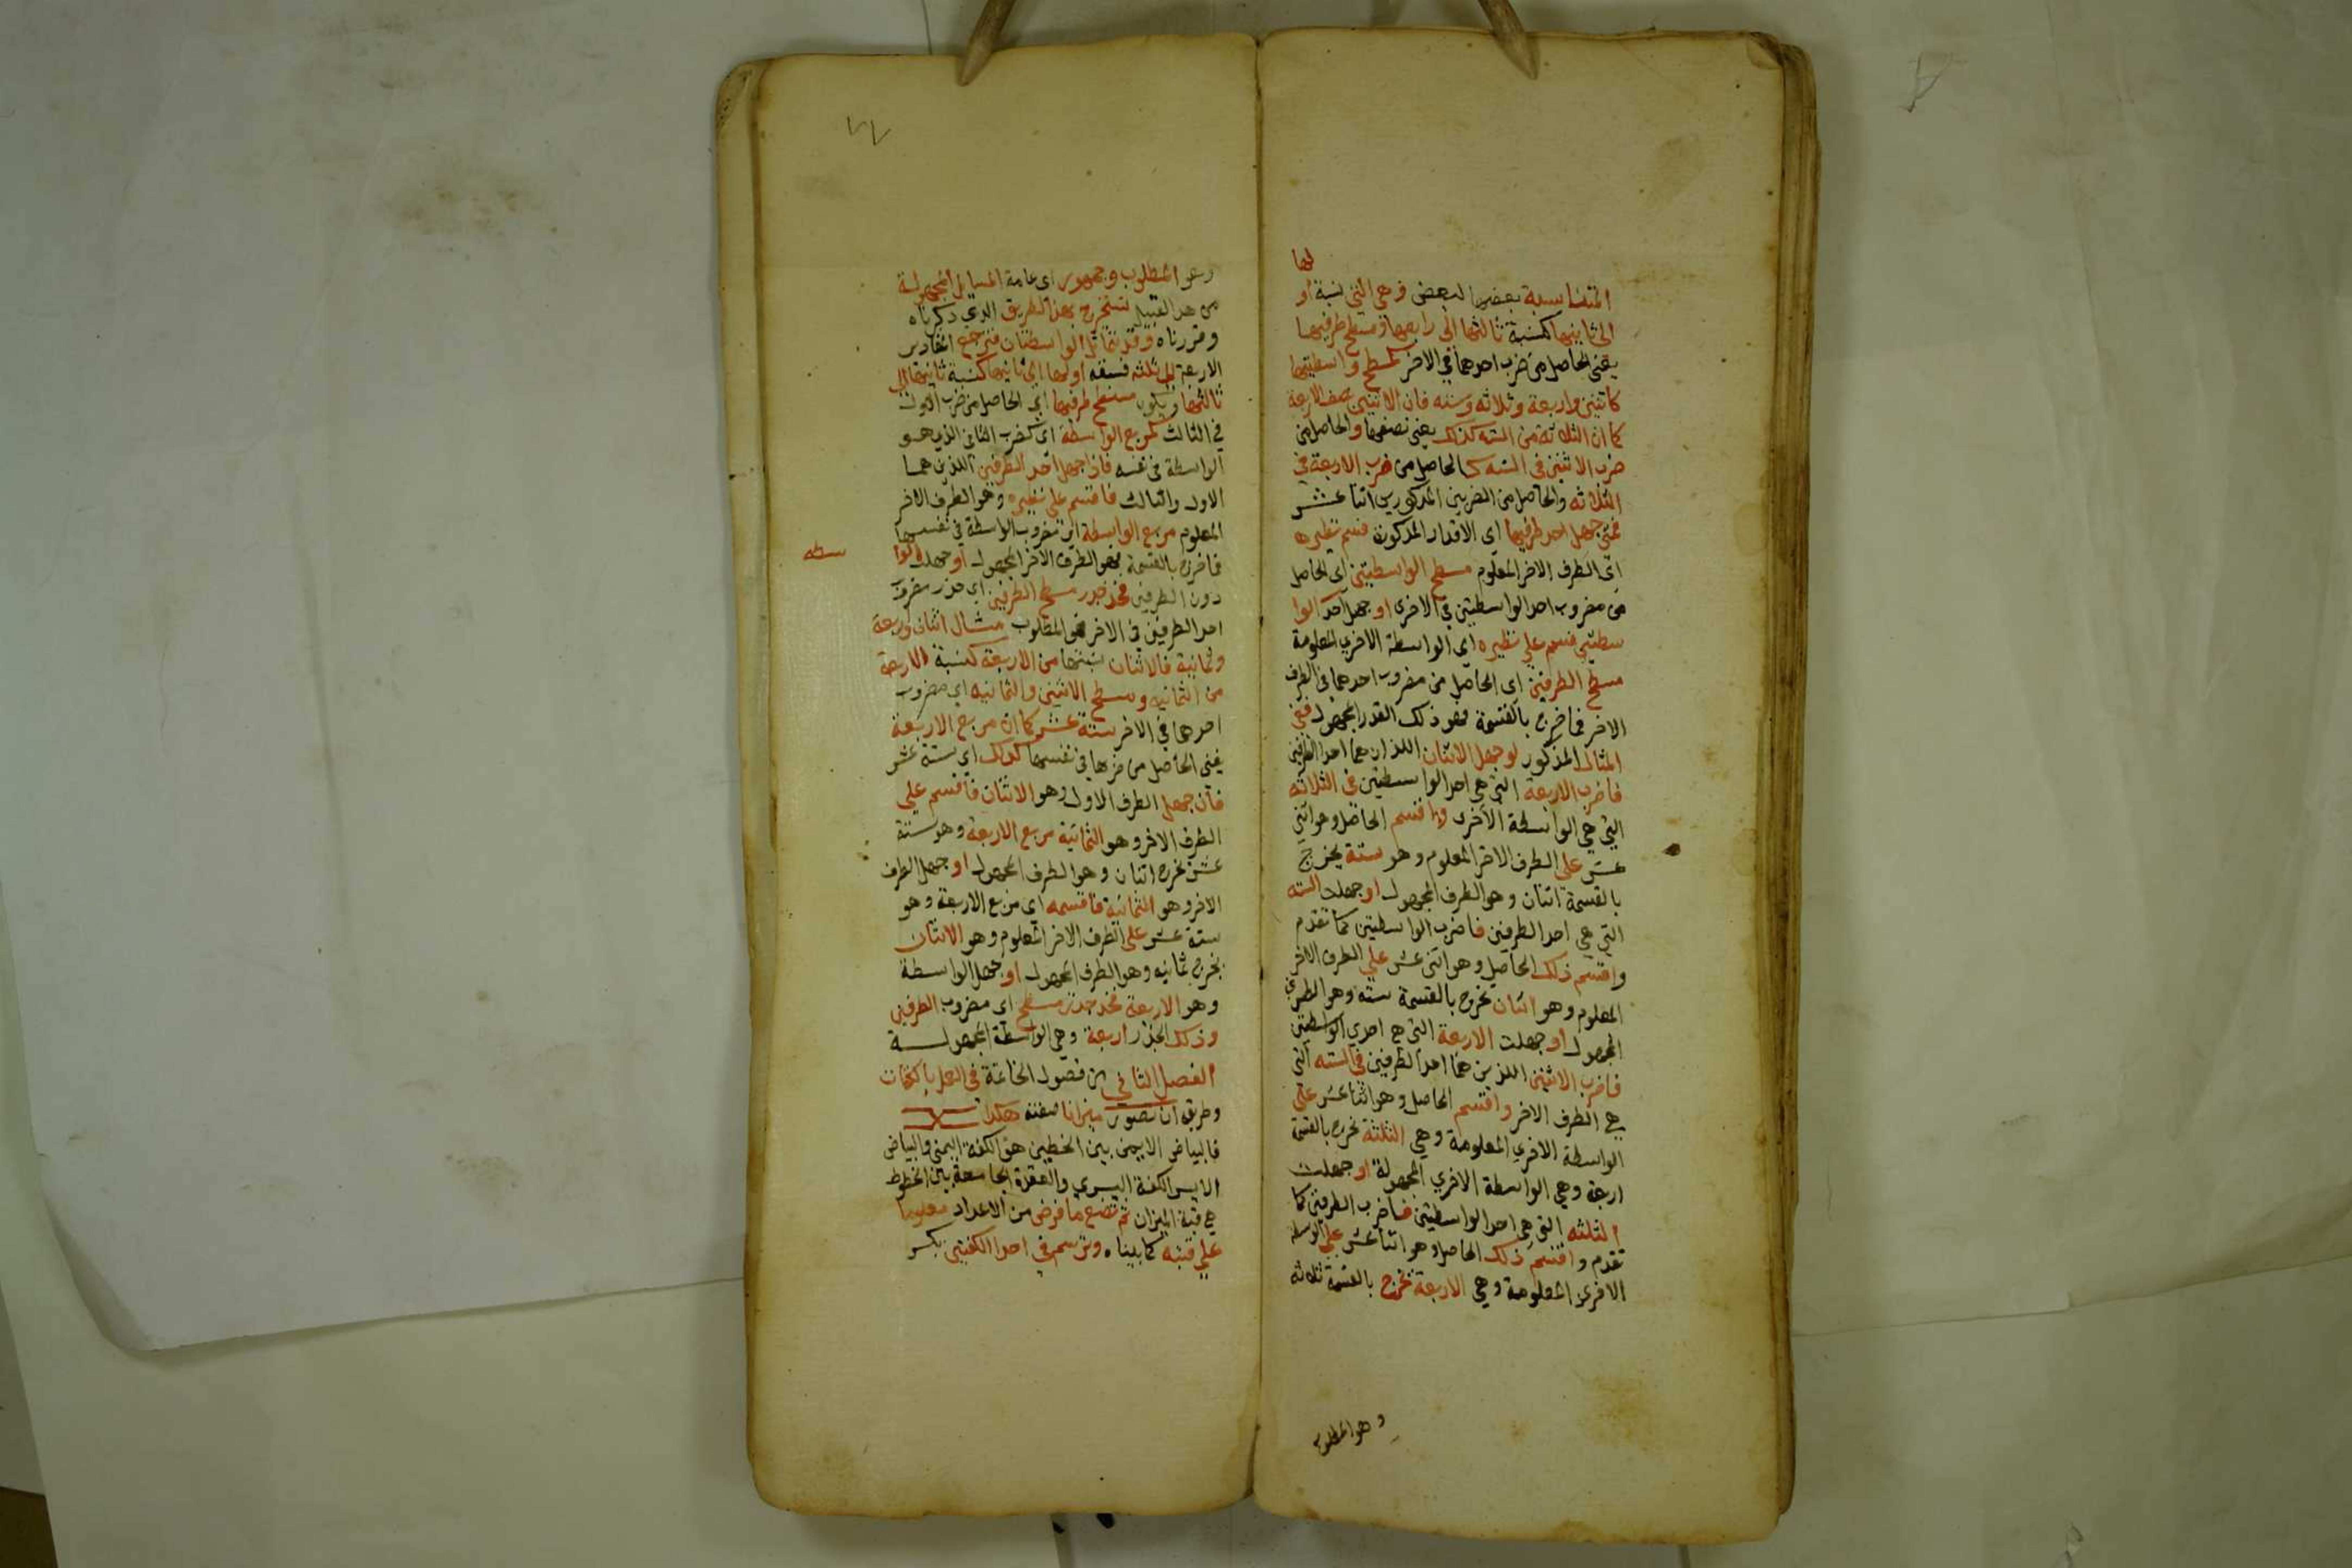 لها
المتناسبة بعضها لبعض وهي التي نسبة أو
الى ثانيها كنسبة ثالثها الى رابعها ومسطح طرفيها
يعني الحاصل من ضرب احدهما في الاخر كمسطح واسطتيها
كاثنين واربعة وثلاثه وسته فان الاثنين نصف الاربعة
كما ان الثلاثة من الستة كذلك يعني نصفها والحاصل من
ضرب الاثنين في الستة كالحاصل من ضرب الاربعة في
الثلاثه والحاصل من الضربين المذكورين اثنا عشر
فمتى جهل احد طرفيها اي الاقدار المذكورة قسم نظيره
اي الطرف الاخر المعلوم مسطح الواسطتين اي الحاصل
من مضروب احد الواسطتين في الاخرى او جهل احد الوا
سطتين قسم علي نظيره اي الواسطة الاخري المعلومة
مسطح الطرفين اي الحاصل من مضروب احدهما في الطرف
الاخر فما خرج بالقسمة فهو ذلك القدر المجهول ففي
المثال المذكور لو جهل الاثنان اللذان هما احد الطرفين
فاضرب الاربعة التي هي احد الواسطتين في الثلاثه
التي هي الواسطة الأخرى واقسم الحاصل وهو اثني
عشر على الطرف الاخر المعلوم وهو ستة يخرج
بالقسمة اثنان وهو الطرف المجهول او جهلت الستة
التي هي احد الطرفين فاضرب الواسطتين كما تقدم
واقسم ذلك الحاصل وهو اثني عشر علي الطرف الاخر
المعلوم وهو اثنان يخرج بالقسمة ستة وهو الطرف
المجهول او جهلت الاربعة التي هي احدي الواسطتين
فاضرب الاثنين اللذين هما احد الطرفين في الستة التي
هي الطرف الاخر واقسم الحاصل وهو اثنا عشر علي
الواسطة الاخري المعلومة وهي الثلثة يخرج بالقسمة
اربعة وهي الواسطة الاخري المجهولة او جهلت
الثلثه التي هي احد الواسطتين فاضرب الطرفين كما
تقدم واقسم ذلك الحاصل وهو اثنا عشر علي الواسطة
الاخرى المعلومة وهي الاربعة يخرج بالقسمة ثلاثه
وهو المطلوب
٧٧
وهو المطلوب وجمهور اي عامة المسايل المجهولة
من هذا القبيل تستخرج بهذا الطريق الذي ذكرناه
وقررناه وقد تماثل الواسطتان فترجع المقادير
الاربعة الى ثلثه فنسبة اولها الى ثانيها كنسبة ثانيها الى
ثالثها ويكون مسطح طرفيها اي الحاصل من ضرب الاول
في الثالث كمربع الواسطة اي كضرب الثاني الذي هو
الواسطة في نفسه فاذا جهل احد الطرفين اللذين هما
الاول والثالث فاقسم علي نظيره وهو الطرف الاخر
المعلوم مربع الواسطة اي مضروب الواسطة في نفسها
فما خرج بالقسمة فهو الطرف الاخر المجهول او جهلت الوا
سطه
دون الطرفين فخذ جذر مسطح الطرفين اي جذر مضروب
احد الطرفين في الاخر فهو المطلوب مثال اثنان واربعة
وثمانية فالاثنان نسبتها من الاربعة كنسبة الاربعة
من الثمانيه ومسطح الاثنين والثمانيه اي مضروب
احدهما في الاخر ستة عشر كما ان مربع الاربعة
يعني الحاصل من ضربها في نفسها كذلك اي ستة عشر
فان جهل الطرف الاول وهو الاثنان فاقسم علي
الطرف الاخر وهو الثمانية مربع الاربعة وهو ستة
عشر يخرج اثنان وهو الطرف المجهول او جهل الطرف
الاخر وهو الثمانية فاقسمه اي مربع الاربعة وهو
ستة عشر على الطرف الاخر المعلوم وهو الاثنان
يخرج ثمانيه وهو الطرف المجهول او جهل الواسطة
وهو الاربعة فخذ جذر مسطح اي مضروب الطرفين
وذلك الجذر اربعة وهي الواسطة المجهولة
الفصل الثاني من فصول الخاتمة في العمل بالكفات
وطريقه ان تصور ميزانا صفته هكذا
فالبياض الايمن بين الخطين هو الكفة اليمني والبياض
الايسر الكفة اليسري والفقرة الجامعة بين الخطوط
هي قبة الميزان ثم تضع ما فرض من الاعداد معلوما
علي قبته كما بيناه وترسم في احدا الكفتين بكسر